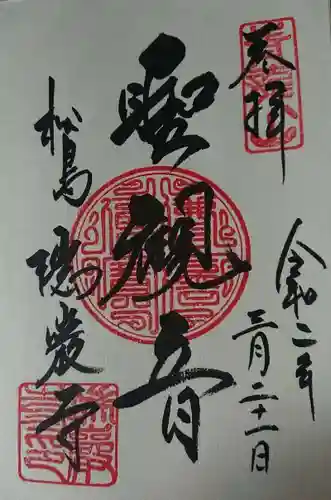 奉拝
令和二年
三月二十一日
聖観音
松島
瑞巌寺